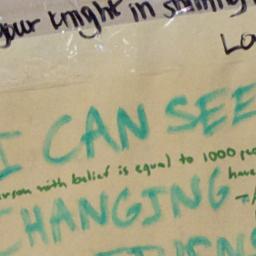 your knight in shining
I CAN SEE
person with belief is equal to 1000
CHANGING
have